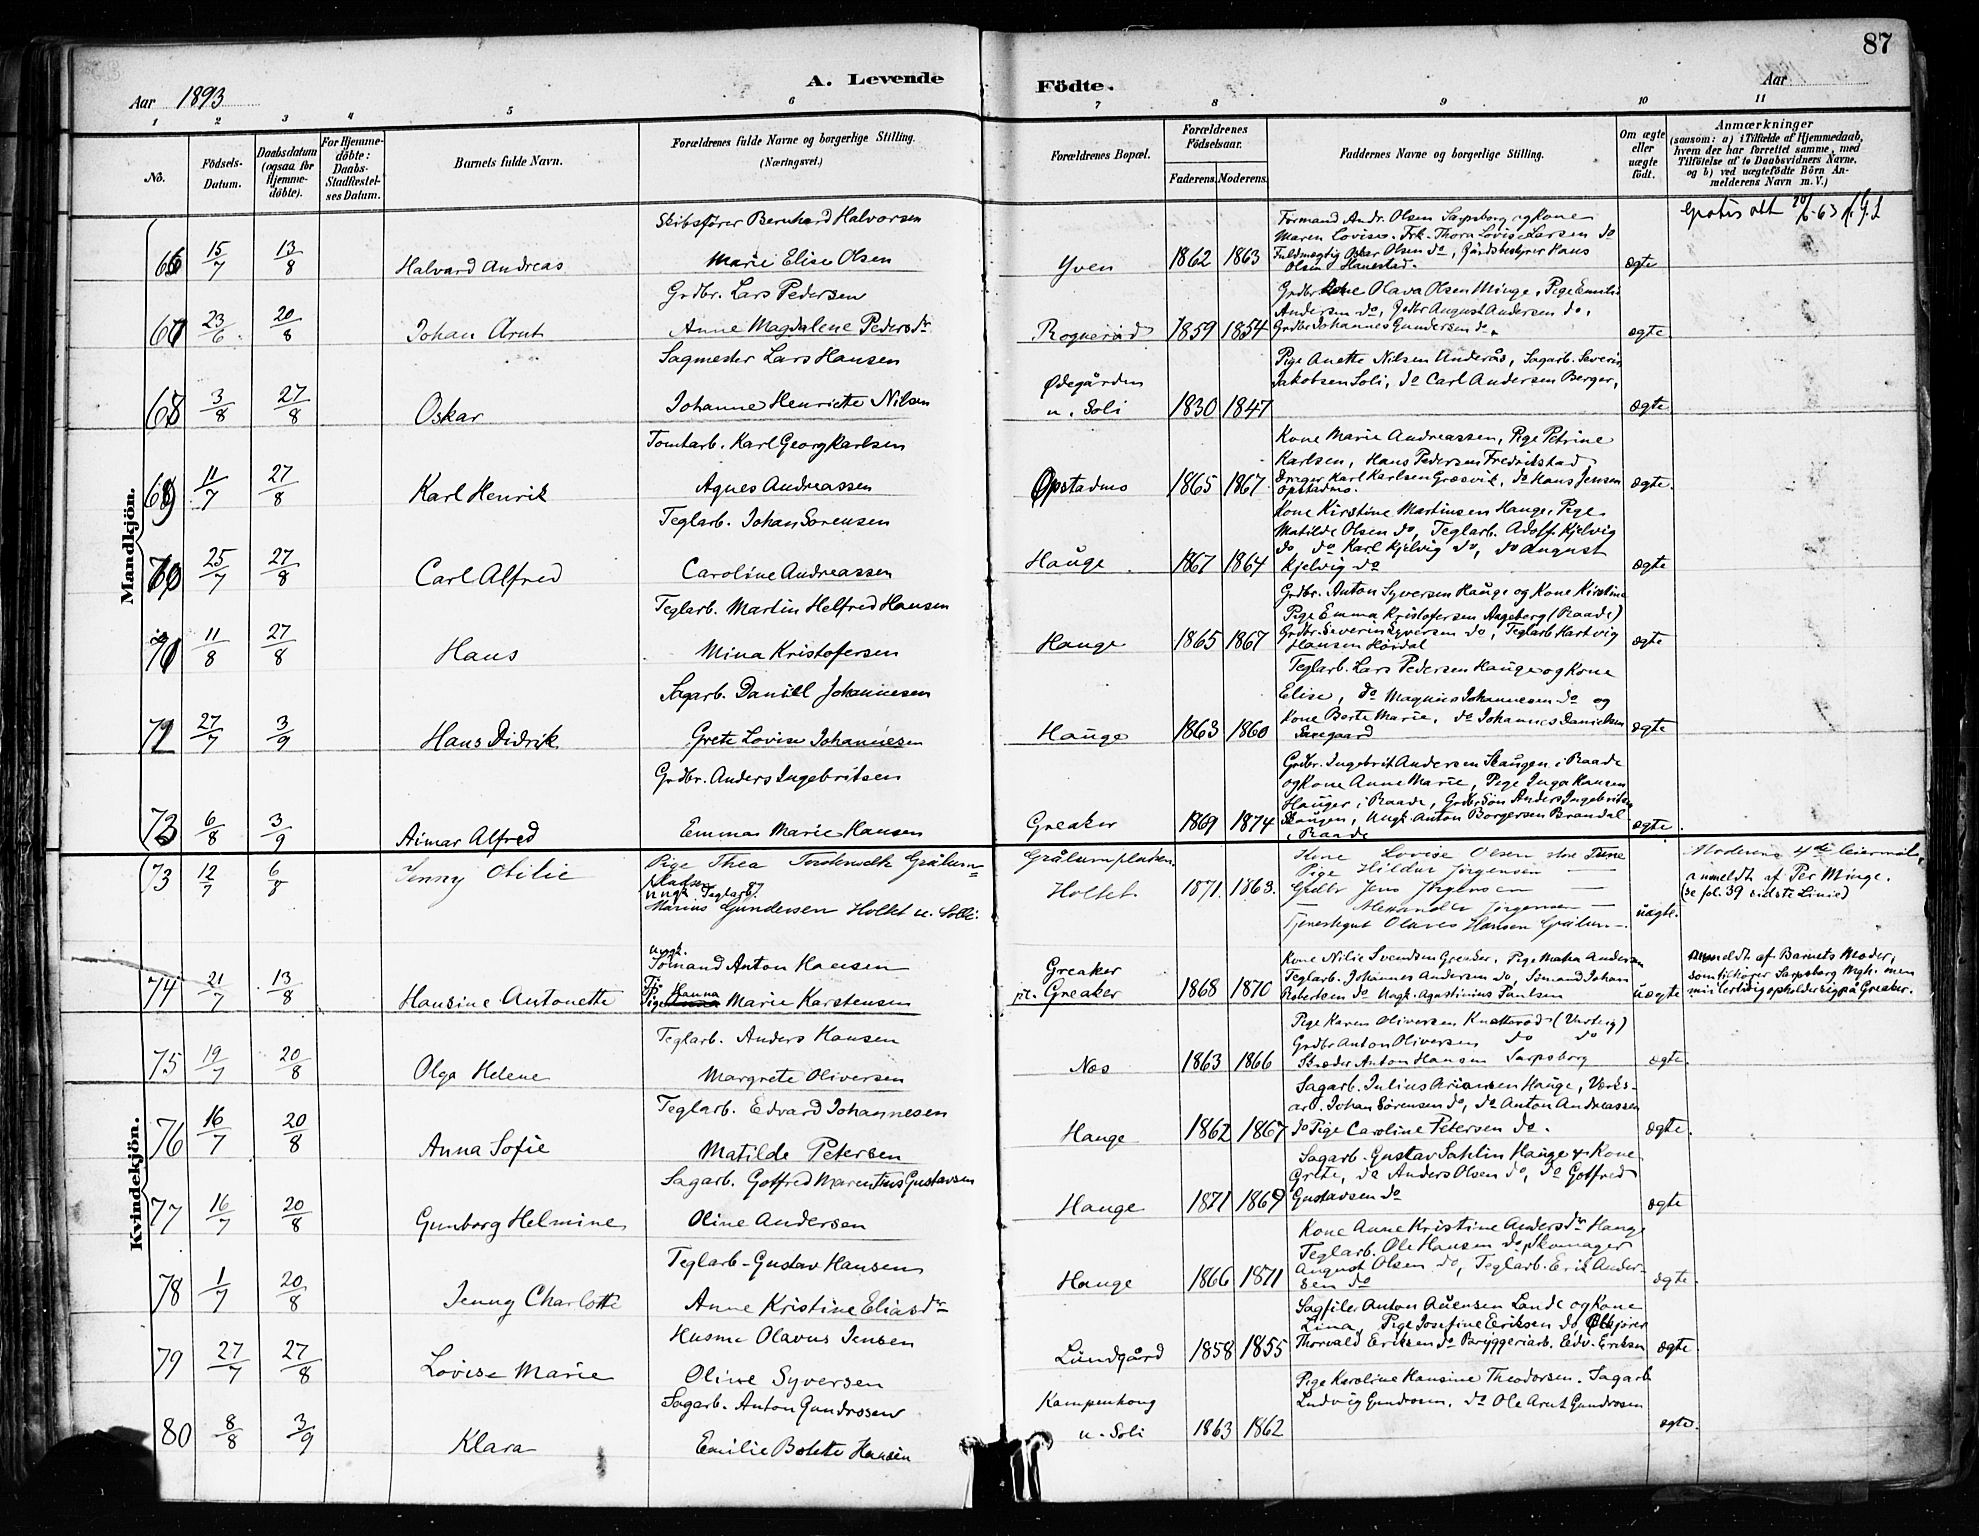 87
A. Levende Födte.
Aar 1893
Aar
1 2 3 4 5 6 7 8 9 10 11
No.
Födsels-Datum.
Daabsdatum (ogsaa for Hjemme-döbte).
For Hjemme-döbte: Daabs-Stadfæstel-ses Datum.
Barnets fulde Navn.
Forældrenes fulde Navne og borgerlige Stilling. (Næringsvei.)
Forældrenes Bopæl.
Forældrenes Födselsaar.
Faderens. Moderens.
Faddernes Navne og borgerlige Stilling.
Om ægte eller uægte födt.
Anmærkninger
(saasom: a) i Tilfælde af Hjemmedaab, hvem der har forrettet samme, med Tilföielse af to Daabsvidners Navne, og b) ved uægtefödte Börn An-melderens Navn m. V.)
Mandkjön.
66 15/7 13/8 Halvard Andreas
Skibsfører Bernhard Halvorsen
Marie Elise Olsen
Yven 1862 1863
Formand Andr. Olsen Sarpsborg og Kone
Maren Lovise. Frk. Thora Lovise Larsen do
Fuldmægtig Oskar Olsen do, Gårdsbestyrer Hans
Olsen Hanestad.
ægte
67 23/6 20/8 Johan Arnt
Grdbr. Lars Pedersen
Anne Magdalene Pedersdr.
Rognerød 1859 1854
Grdbr Kone Olava Olsen Minge, Pige Emilie
Andersen do, Grdbr August Andersen do,
Grdbr Johannes Gundersen do.
ægte.
68 3/8 27/8 Oskar
Sagmester Lars Hansen
Johanne Henriette Nilsen
Ødegården
u. Soli 1830 1847
Pige Anette Nilsen Underås, Sagarb. Severin
Jakobsen Soli, do Carl Andersen Berger,
ægte
69 11/7 27/8 Karl Henrik
Tomtarb. Karl Georg Karlsen
Agnes Andreassen
Opstadmo 1865 1867
Kone Marie Andreassen, Pige Petrine
Karlsen, Hans Pedersen Fredrikstad
Drager Karl Karlsen Græsvik, do Hans Jensen
Opstadmo.
ægte.
70 25/7 27/8 Carl Alfred
Teglarb. Johan Sørensen
Caroline Andreassen
Hauge 1867 1864
Kone Kirstine Martinsen Hauge, Pige
Matilde Olsen do, Teglarb. Adolf Kjelvig
do, do Karl Kjelvig do, do August
Kjelvig do
ægte
71 11/8 27/8 Hans
Teglarb. Martin Helfred Hansen
Mina Kristofersen
Hauge 1865 1867
Grdbr. Anton Syversen Hauge og Kone Kirstine
Pige Emma Kristofersen Augeberg (Raade)
Grdbr. Severin Syversen do, Teglarb Hartvig
Hansen Hørdal
ægte
72 27/7 3/9 Hans Didrik
Sagarb. Daniel Johannesen
Grete Lovise Johannesen
Hauge 1863 1860
Teglarb. Lars Pedersen Hauge og Kone
Elise, do Magnus Johannesen do og
Kone Berte Marie, do Johannes Danielsen
ægte
73 6/8 3/9 Aimar Alfred
Grdbr. Anders Ingebritsen
Emma Marie Hansen
Greaker 1869 1874
Grdbr. Ingebrit Andersen Haugen i Raade
og Kone Anne Marie, Pige Inga Hansen
Hauger i Raade, Grdbr. Søn Anders Ingebritsen
Haugen, Ungk. Anton Borgersen Brandal
i Raade
ægte.
Gratis att 20/6-63
Kvindekjön.
73 12/7 6/8 Jenny Otilie
Pige Thea Tordenvelk Grålum=
pladsen
Ungk. Teglarb.
Marius Gundersen Holtet u. Solli.
Grålumpladsen
Holtet 1871. 1863.
Kone Lovise Olsen store Tune
Pige Hildur Jørgensen —
Grdbr Jens Jørgensen —
Alexander Jørgensen —
Tjenestegut Olaves Hansen Grålum —.
uægte.
Moderens 4de Leiermål,
anmeldt af Per Minge.
(se fol. 39 sidste Linie)
74 21/7 13/8 Hansine Antonette
Ungk.
Sømand Anton Hansen
Pige Hanna Marie Karstensen
Greaker
pt. Greaker 1868 1870
Kone Nilie Svendsen Greaker, Pige Matea Andersen
Teglarb. Johannes Andersen do, Sømand Johan
Robertsen do Ungk. Agustinius Paulsen
uægte
anmeldt af Barnets Moder,
som tilhører Sarpsborg Mgh. men
midlertidig opholder sig på Greaker.
75 19/7 20/8 Olga Helene
Teglarb. Anders Hansen
Margrete Oliversen
Næs 1863 1866
Pige Karen Oliversen Knatterød (Varteig)
Grdbr Anton Oliversen do do
Skræder Anton Hansen Sarpsborg
ægte.
76 16/7 20/8 Anna Sofie
Teglarb. Edvard Johannesen
Matilde Petersen
Hauge 1862 1867
Sagarb. Julius Ariansen Hauge, Værks-
arb. Johan Sørensen do, do Anton Andreassen
do Pige Caroline Petersen do.
ægte.
77 16/7 20/8 Gunborg Helmine
Sagarb. Gotfred Marentius Gustavsen
Oline Andersen
Hauge 1871 1869
Sagarb. Gustav Sahlin Hauge & Kone
Grete, do Anders Olsen do, do Gotfred
Gustavsen do
ægte
78 1/7 20/8 Jenny Charlotte
Teglarb. Gustav Hansen
Anne Kristine Eliasdr
Hauge 1866 1871
Kone Anne Kristine Andersdr Hauge
Teglarb. Ole Hansen do, Skomager
August Olsen do, Teglarb. Erik Ander-
sen do
ægte
79 27/7 27/8 Lovise Marie
Husm. Olavus Jensen
Oline Syversen
Lundgård 1858 1855
Sagfiler Anton Auensen Lande og Kone
Lina, Pige Josefine Eriksen do Ølkjører
Thorvald Eriksen do Bryggeriarb. Edv. Eriksen
ægte
80 8/8 3/9 Klara
Sagarb. Anton Gundrosen
Emilie Bolette Hansen
Kampenhoug
u. Soli 1863 1862
Pige Karoline Hansine Theodorsen, Sagarb
Ludvig Gundrosen, do Ole Arnt Gundrosen
ægte.